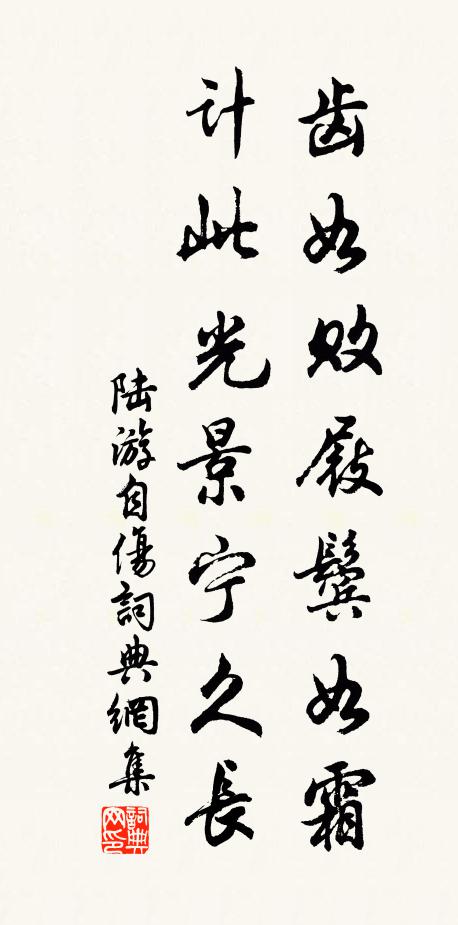 齿如败屐鬓如霜
计此光景宁久長
陆游自傷詞典網集
詞典网印